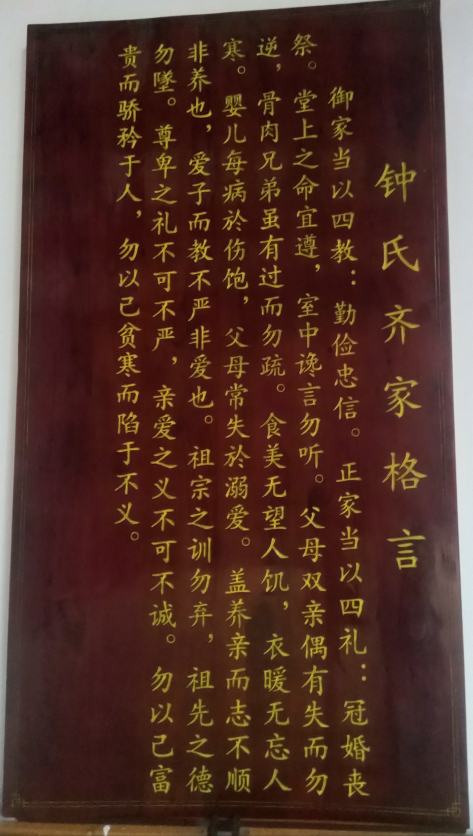 钟氏齐家格言
御家当以四教：勤俭忠信。正家当以四礼：冠婚丧
祭。堂上之命宜遵，室中谗言勿听。父母双亲偶有失而勿
逆，骨肉兄弟虽有过而勿疏。食美无望人饥，衣暖无忘人
寒。婴儿每病於伤饱，父母常失於溺爱。盖养亲而志不顺
非养也，爱子而教不严非爱也。祖宗之训勿弃，祖先之德
勿墜。尊卑之礼不可不严，亲爱之义不可不诚。勿以己富
贵而骄矜于人，勿以己贫寒而陷于不义。